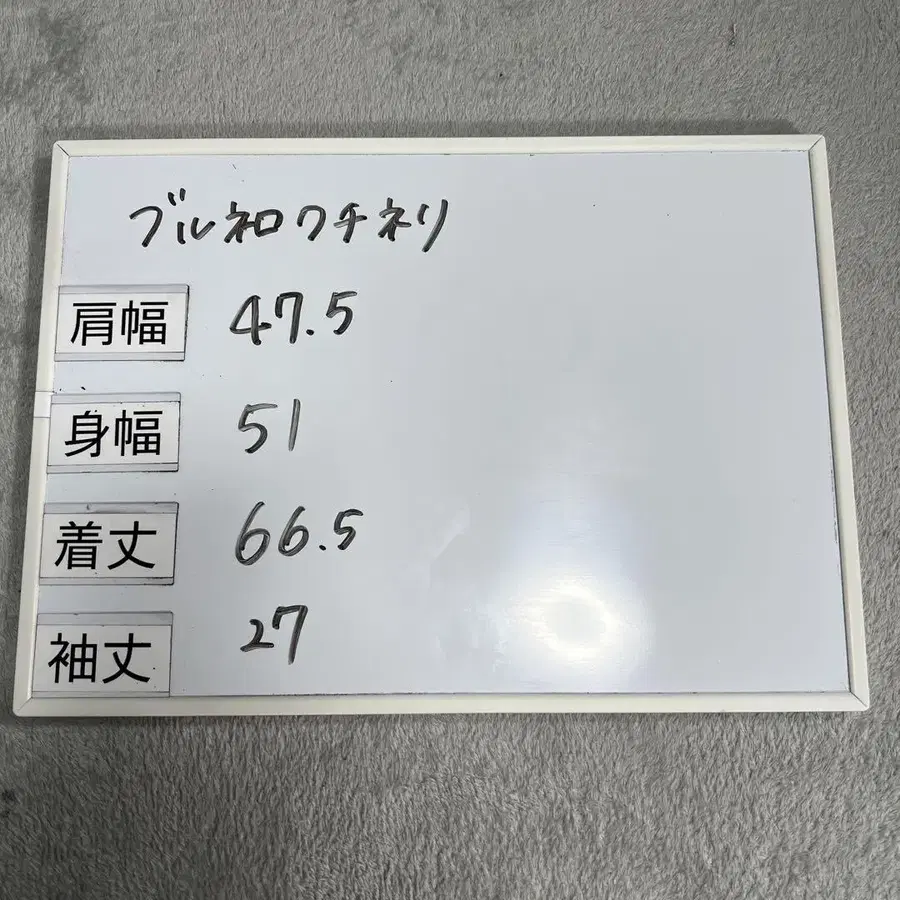 ブルネロクチネリ
肩幅 47.5
身幅 51
着丈 66.5
袖丈 27